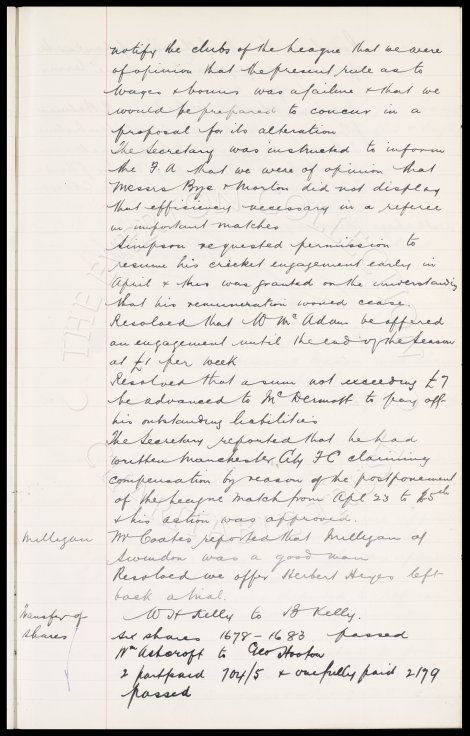 notify the clubs of the League that we were
of opinion that the present rule as to
wages & bonus was a failure & that we
would be prepared to concur in a
proposal for its alteration
The Secretary was instructed to inform
the F.A that we were of opinion that
Messrs Bye & Morton did not display
that efficiency necessary in a referee
in important matches
Simpson requested permission to
resume his cricket engagement early in
April & this was granted on the understanding
that his remuneration would cease.
Resolved that W McAdam be offered
an engagement until the end of the Season
at £1 per week
Resolved that a sum not exceeding £7
be advanced to McDermott to pay off
his outstanding liabilities
The Secretary reported that he had
written Manchester City FC claiming
compensation by reason of the postponement
of the League match from Apl 23 to 25th
& his action was approved.
Milligan Mr Coates reported that Milligan of
Swindon was a good man
Resolved we offer Herbert Hayes left
back a trial.
Transfer of W H Kelly to B Kelly.
Shares six shares 1678-1683 passed
Wm Ashcroft to Geo Hooton
2 partpaid 704/5 & one fully paid 2179
passed